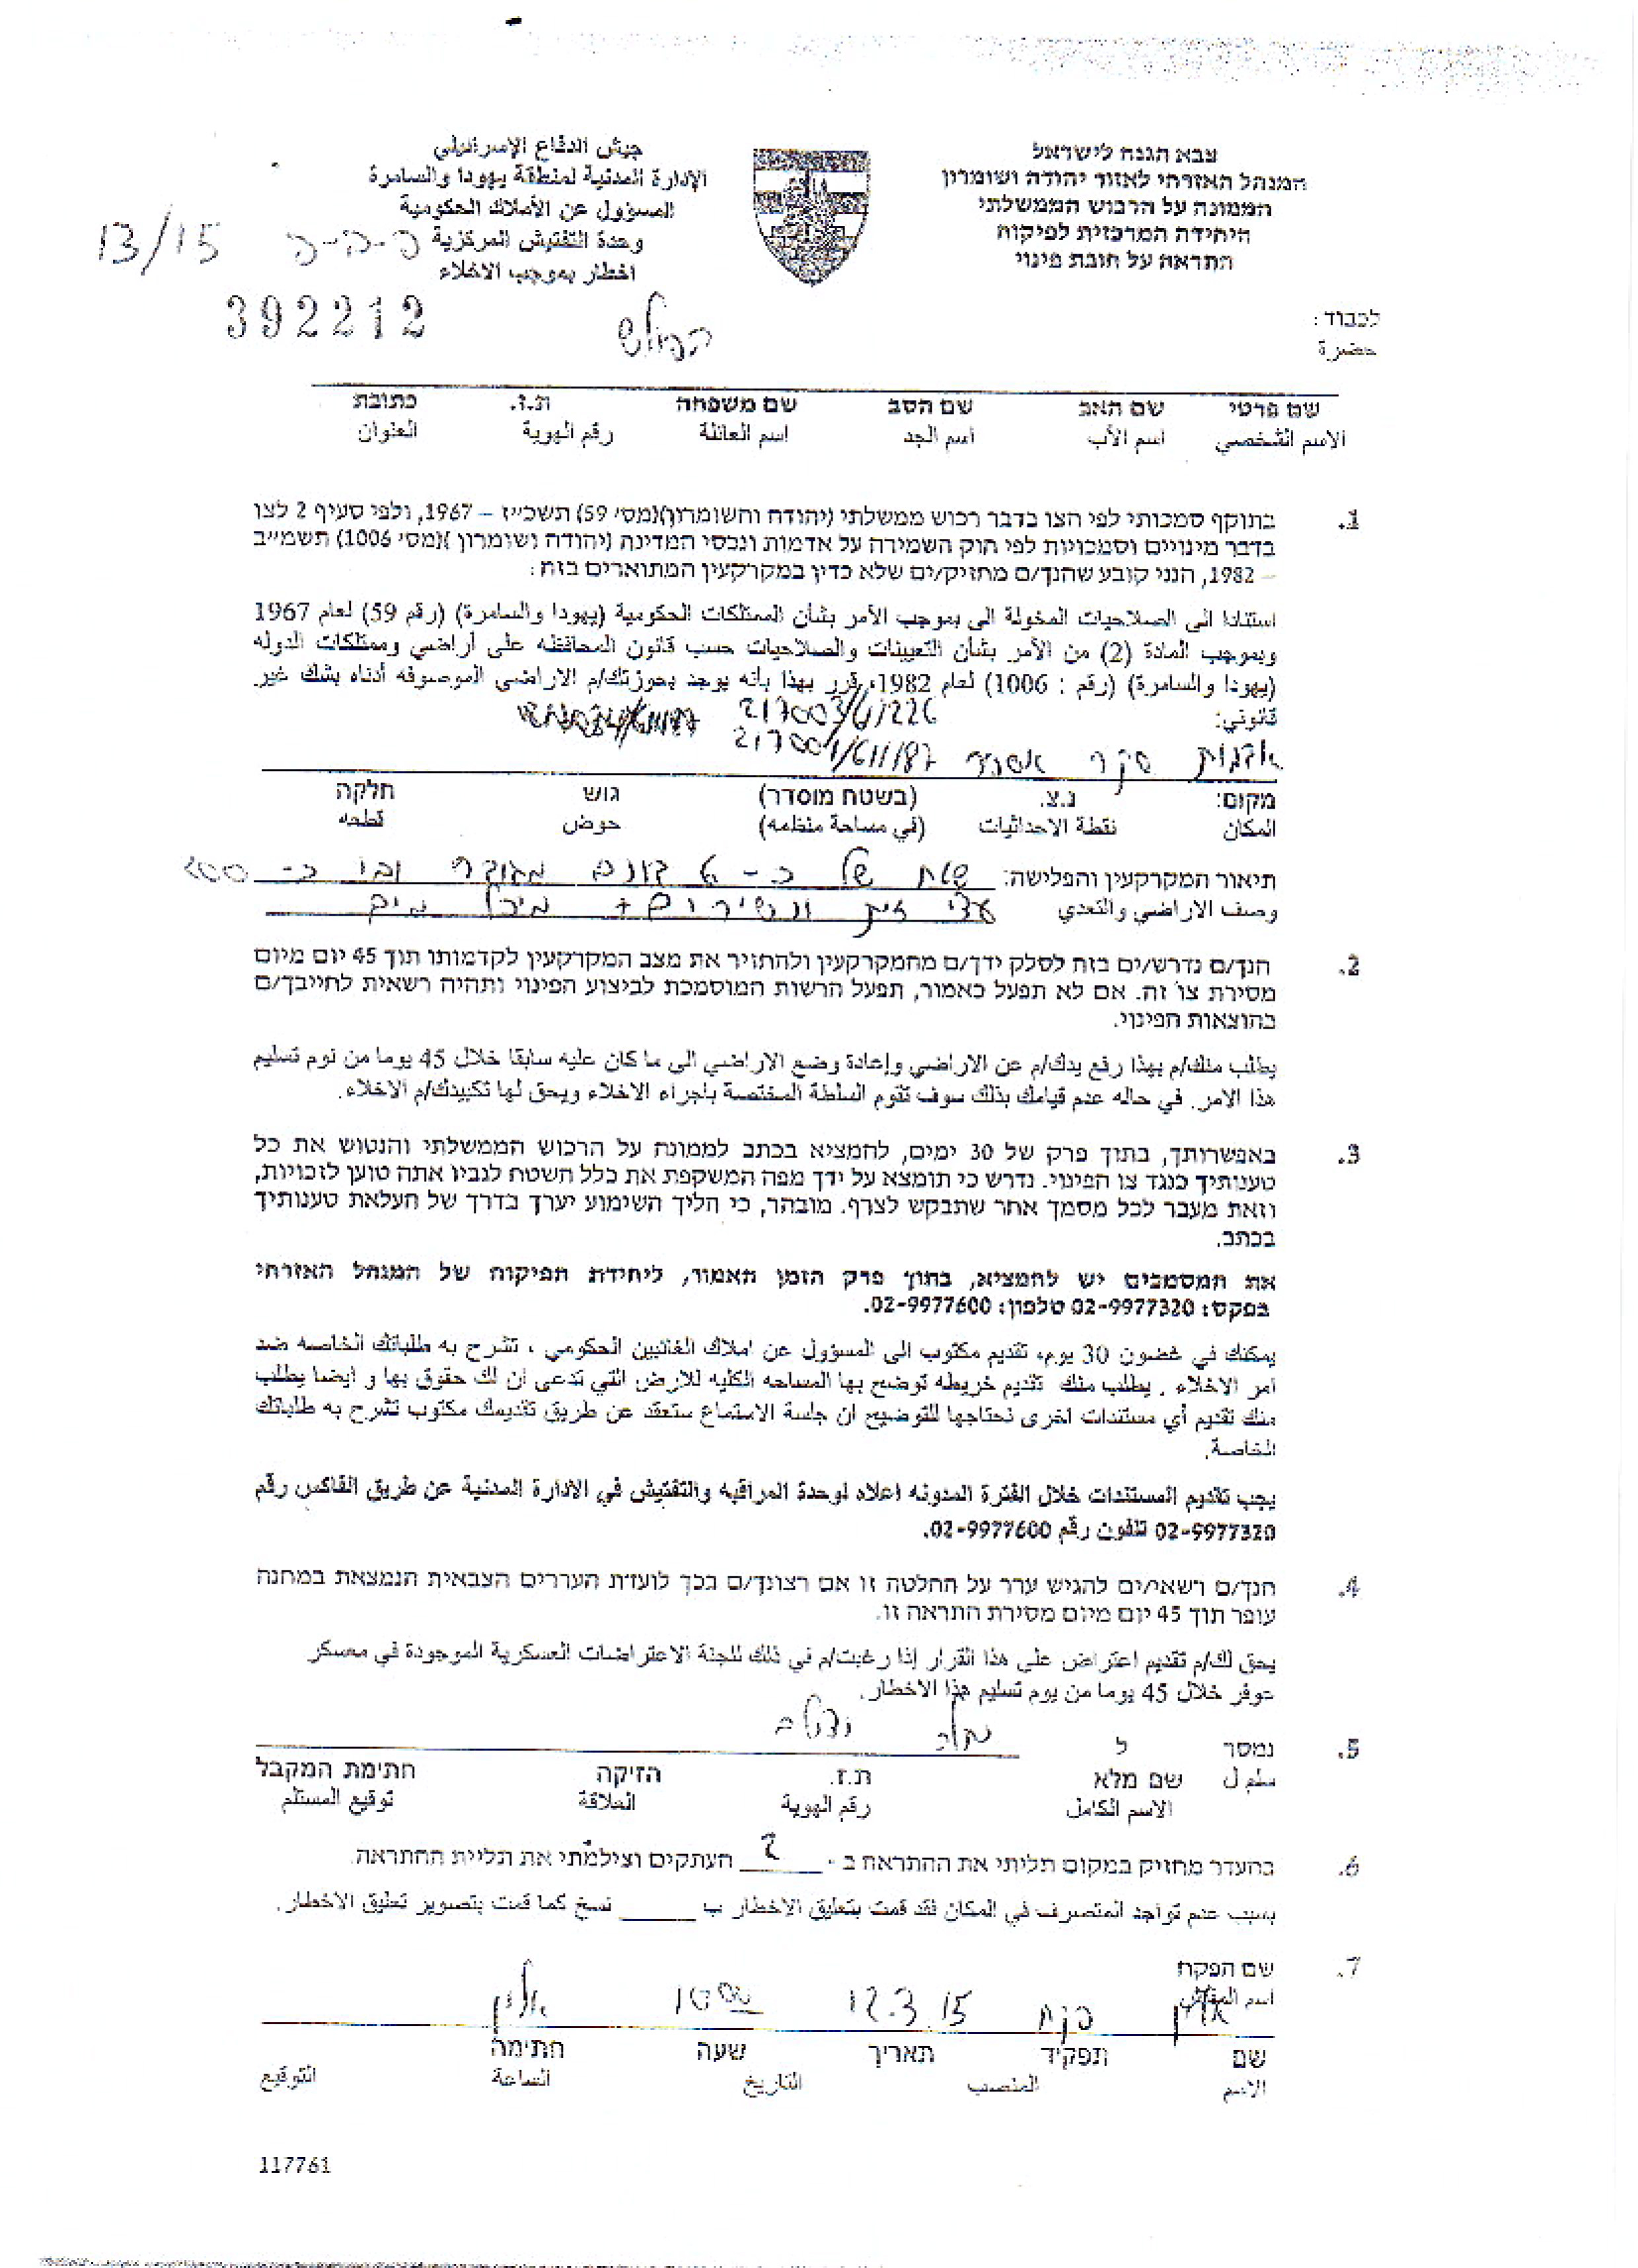 צבא הגנה לישראל
המנהל האזרחי לאזור יהודה ושומרון
הממונה על הרכוש הממשלתי
היחידה המרכזית לפיקוח
התראה על חובת פינוי
جيش الدفاع الإسرائيلي
الإدارة المدنية لمنطقة يهودا والسامرة
المسؤول عن الأملاك الحكومية
وحدة التفتيش المركزية
اخطار بموجب الاخلاء
13/15
392212
לכבוד:
הפולש
حضرة
שם פרטי שם האב שם הסב שם משפחה ת.ז. כתובת
الاسم الشخصي اسم الأب اسم الجد اسم العائلة رقم الهوية العنوان
1. בתוקף סמכותי לפי הצו בדבר רכוש ממשלתי (יהודה והשומרון)(מס' 59) תשכ"ז – 1967, ולפי סעיף 2 לצו
בדבר מינויים וסמכויות לפי חוק השמירה על אדמות ונכסי המדינה (יהודה ושומרון )(מס' 1006) תשמ"ב
– 1982, הנני קובע שהנך/ם מחזיק/ים שלא כדין במקרקעין המתוארים בזה:
استنادا الى الصلاحيات المخولة الى بموجب الأمر بشأن الممتلكات الحكومية (يهودا والسامرة) (رقم 59) لعام 1967
وبموجب المادة (2) من الأمر بشأن التعيينات والصلاحيات حسب قانون المحافظه على أراضي وممتلكات الدوله
(يهودا والسامرة) (رقم : 1006) لعام 1982، قرر بهذا بانه يوجد بحوزتك/م الاراضي الموصوفه أدناه بشك غير
قانوني: 217003/611226
אדמות סקר 217001/611187
מקום: נ.צ. (בשטח מוסדר) גוש חלקה
المكان نقطة الاحداثيات (في مساحة منظمه) حوض قطعه
תיאור המקרקעין והפלישה: שטח של כ- דונם מגודר ובו כ- 200
وصف الاراضي والتعدي עצי זית + מיכל מים
2. הנך/ם נדרש/ים בזה לסלק ידך/ם מהמקרקעין ולהחזיר את מצב המקרקעין לקדמותו תוך 45 יום מיום
מסירת צו זה. אם לא תפעל כאמור, תפעל הרשות המוסמכת לביצוע הפינוי ותהיה רשאית לחייבך/ם
בהוצאות הפינוי.
يطلب منك/م بهذا رفع يدك/م عن الاراضي وإعادة وضع الاراضي الى ما كان عليه سابقا خلال 45 يوما من نوم تسليم
هذا الامر. في حاله عدم قيامك بذلك سوف تقوم السلطة المختصة باجراء الاخلاء ويحق لها تكبيدك/م الاخلاء.
3. באפשרותך, בתוך פרק של 30 ימים, להמציא בכתב לממונה על הרכוש הממשלתי והנטוש את כל
טענותיך כנגד צו הפינוי. נדרש כי תומצא על ידך מפה המשקפת את כלל השטח לגביו אתה טוען לזכויות,
וזאת מעבר לכל מסמך אחר שתבקש לצרף. מובהר, כי הליך השימוע יערך בדרך של העלאת טענותיך
בכתב.
את המסמכים יש להמציא, בתוך פרק הזמן האמור, ליחידת הפיקוח של המנהל האזרחי
בפקס: 02-9977320 טלפון: 02-9977600.
يمكنك في غضون 30 يوم، تقديم مكتوب الى المسؤول عن املاك الغائبين الحكومي ، تشرح به طلباتك الخاصه ضد
امر الاخلاء . يطلب منك تقديم خريطه توضح بها المساحه الكليه للارض التي تدعى ان لك حقوق بها و ايضا يطلب
منك تقديم أي مستندات اخرى تحتاجها للتوضيح ان جلسة الاستماع ستعقد عن طريق تقديمك مكتوب تشرح به طلباتك
الخاصة.
يجب تقديم المستندات خلال الفترة المدونه اعلاه لوحدة المراقبه والتفتيش في الادارة المدنية عن طريق الفاكس رقم
02-9977320 تلفون رقم 02-9977600.
4. הנך/ם רשאי/ים להגיש ערר על החלטה זו אם רצונך/ם בכך לועדת העררים הצבאית הנמצאת במחנה
עופר תוך 45 יום מיום מסירת התראה זו.
يحق لك/م تقديم اعتراض على هذا القرار إذا رغبت/م في ذلك للجنة الاعتراضات العسكرية الموجودة في معسكر
عوفر خلال 45 يوما من يوم تسليم هذا الاخطار.
5. נמסר ל
سلم ل שם מלא ת.ז. הזיקה חתימת המקבל
الاسم الكامل رقم الهوية العلاقة توقيع المستلم
6. בהעדר מחזיק במקום תליתי את ההתראה ב - 2 העתקים וצילמתי את תליית ההתראה.
بسبب عدم تواجد المتصرف في المكان فقد قمت بتعليق الاخطار ب ____ نسخ كما قمت بتصوير تعليق الاخطار.
7. שם הפקח
اسم المفتش
פקח 12.3.15 10:00
שם תפקיד תאריך שעה חתימה
الاسم المنصب التاريخ الساعة التوقيع
117761